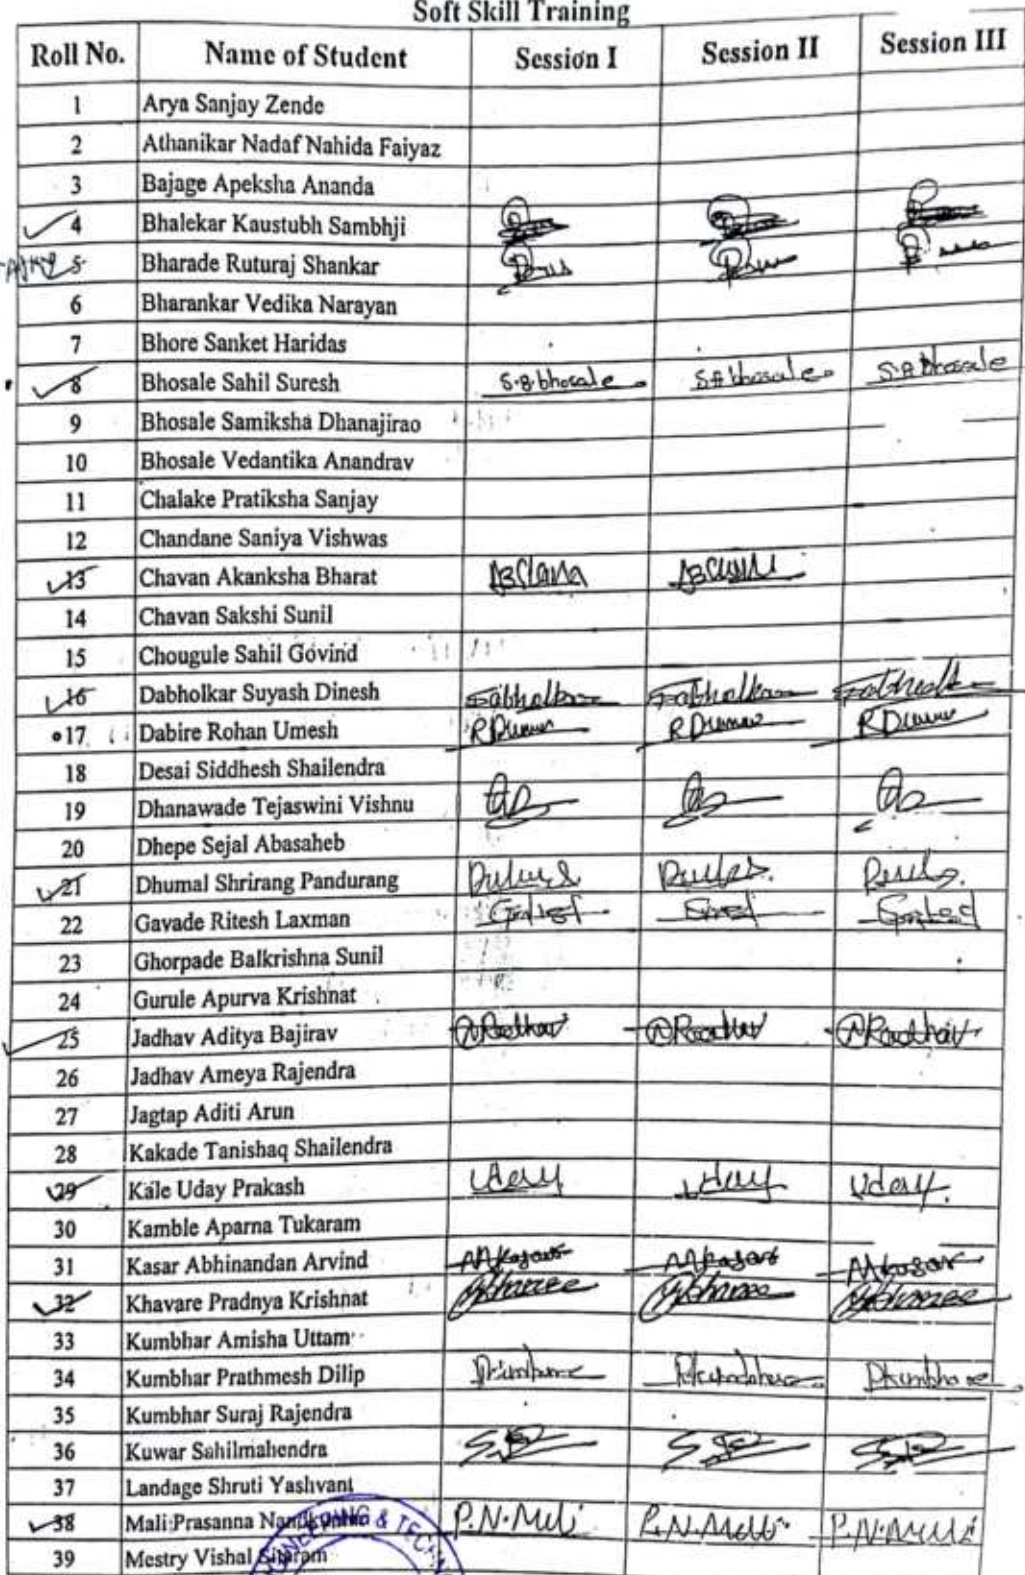 Soft Skill Training
Roll No. Name of Student Session I Session II Session III
1 Arya Sanjay Zende
2 Athanikar Nadaf Nahida Faiyaz
3 Bajage Apeksha Ananda
4 Bhalekar Kaustubh Sambhji
5 Bharade Ruturaj Shankar
6 Bharankar Vedika Narayan
7 Bhore Sanket Haridas
8 Bhosale Sahil Suresh S.B.bhosale S.B bhosale S.B bhosale
9 Bhosale Samiksha Dhanajirao
10 Bhosale Vedantika Anandrav
11 Chalake Pratiksha Sanjay
12 Chandane Saniya Vishwas
13 Chavan Akanksha Bharat
14 Chavan Sakshi Sunil
15 Chougule Sahil Govind
16 Dabholkar Suyash Dinesh
17 Dabire Rohan Umesh
18 Desai Siddhesh Shailendra
19 Dhanawade Tejaswini Vishnu
20 Dhepe Sejal Abasaheb
21 Dhumal Shrirang Pandurang
22 Gavade Ritesh Laxman
23 Ghorpade Balkrishna Sunil
24 Gurule Apurva Krishnat
25 Jadhav Aditya Bajirav
26 Jadhav Ameya Rajendra
27 Jagtap Aditi Arun
28 Kakade Tanishaq Shailendra
29 Kale Uday Prakash Uday Uday Uday.
30 Kamble Aparna Tukaram
31 Kasar Abhinandan Arvind
32 Khavare Pradnya Krishnat
33 Kumbhar Amisha Uttam
34 Kumbhar Prathmesh Dilip
35 Kumbhar Suraj Rajendra
36 Kuwar Sahilmahendra
37 Landage Shruti Yashvant
38 Mali Prasanna P.N.Mali P.N.Mali P.N.Mali
39 Mestry Vishal Sitaram